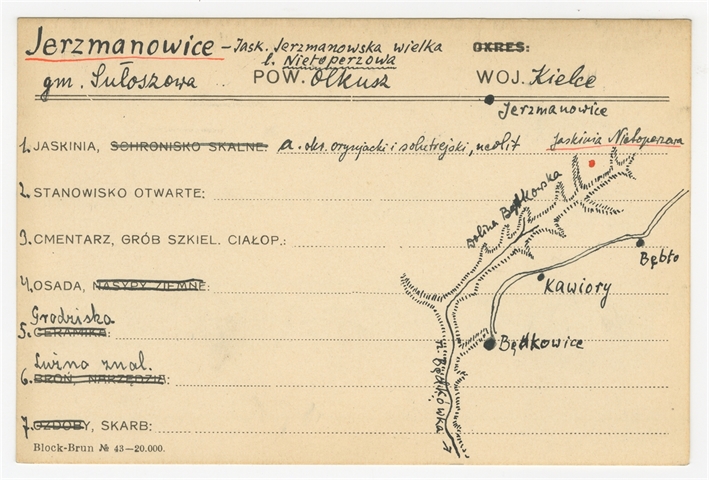 Jerzmanowice - Jask. Jerzmanowska wielka OKRES:
l. Nietoperzowa
gm. Sułoszowa POW. Olkusz WOJ. Kielce
Jerzmanowice
1. JASKINIA, SCHRONISKO SKALNE: a. oks. oryniacki i solutrejski, neolit
Jaskinia Nietoperzowa
2. STANOWISKO OTWARTE:
Dolina Będkowska
3. CMENTARZ, GRÓB SZKIEL. CIAŁOP.:
Bębło
4. OSADA, NASYPY ZIEMNE:
Kawiory
Grodziska
5. CERAMIKA:
Będkowice
Luźno znal.
6. BROŃ, NARZĘDZIA:
r. Będkówka
7. OZDOBY, SKARB:
Block-Brun № 43—20.000.